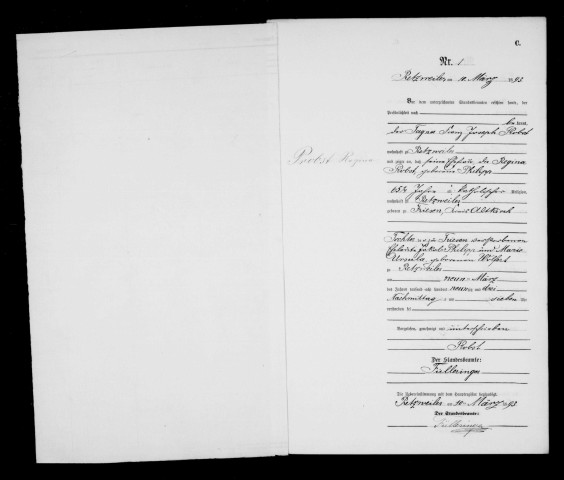 C.
Nr. 1
Retzweiler am 10. März 1893
Vor dem unterzeichneten Standesbeamten erschien heute, der
Persönlichkeit nach
bekannt,
der Tagner Franz Joseph Probst
wohnhaft zu Retzweiler
und zeigte an, daß seine Ehefrau, die Regina
Probst, geborene Philipp
65½ Jahre alt, katholischer Religion,
wohnhaft zu Retzweiler
geboren zu Friesen, Kreis Altkirch
Tochter der zu Friesen verstorbenen
Eheleute Philipp und Maria
Ursula, geborenen
zu Retzweiler
am neun März
des Jahres tausend acht hundert neunzig und drei
Nachmittags um sieben Uhr
verstorben sei
Vorgelesen, genehmigt und unterschrieben
Probst
Der Standesbeamte:
Fulleringer
Die Uebereinstimmung mit dem Hauptregister beglaubigt.
Retzweiler am 10. März 1893
Der Standesbeamte:
Fulleringer
Probst Regina